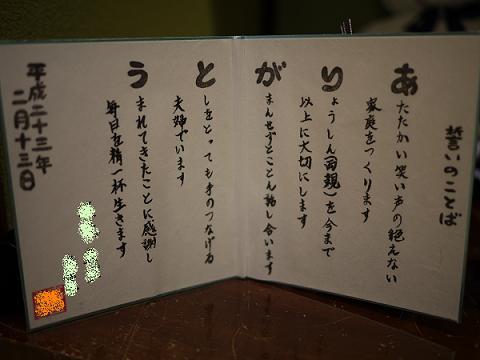 誓いのことば
あたたかい笑い声の絶えない
家庭をつくります
りょうしん(両親)を今まで
以上に大切にします
がまんせずとことん話し合います
としをとっても手のつなげる
夫婦でいます
うまれてきたことに感謝し
毎日を精一杯生きます
平成二十三年
二月十三日